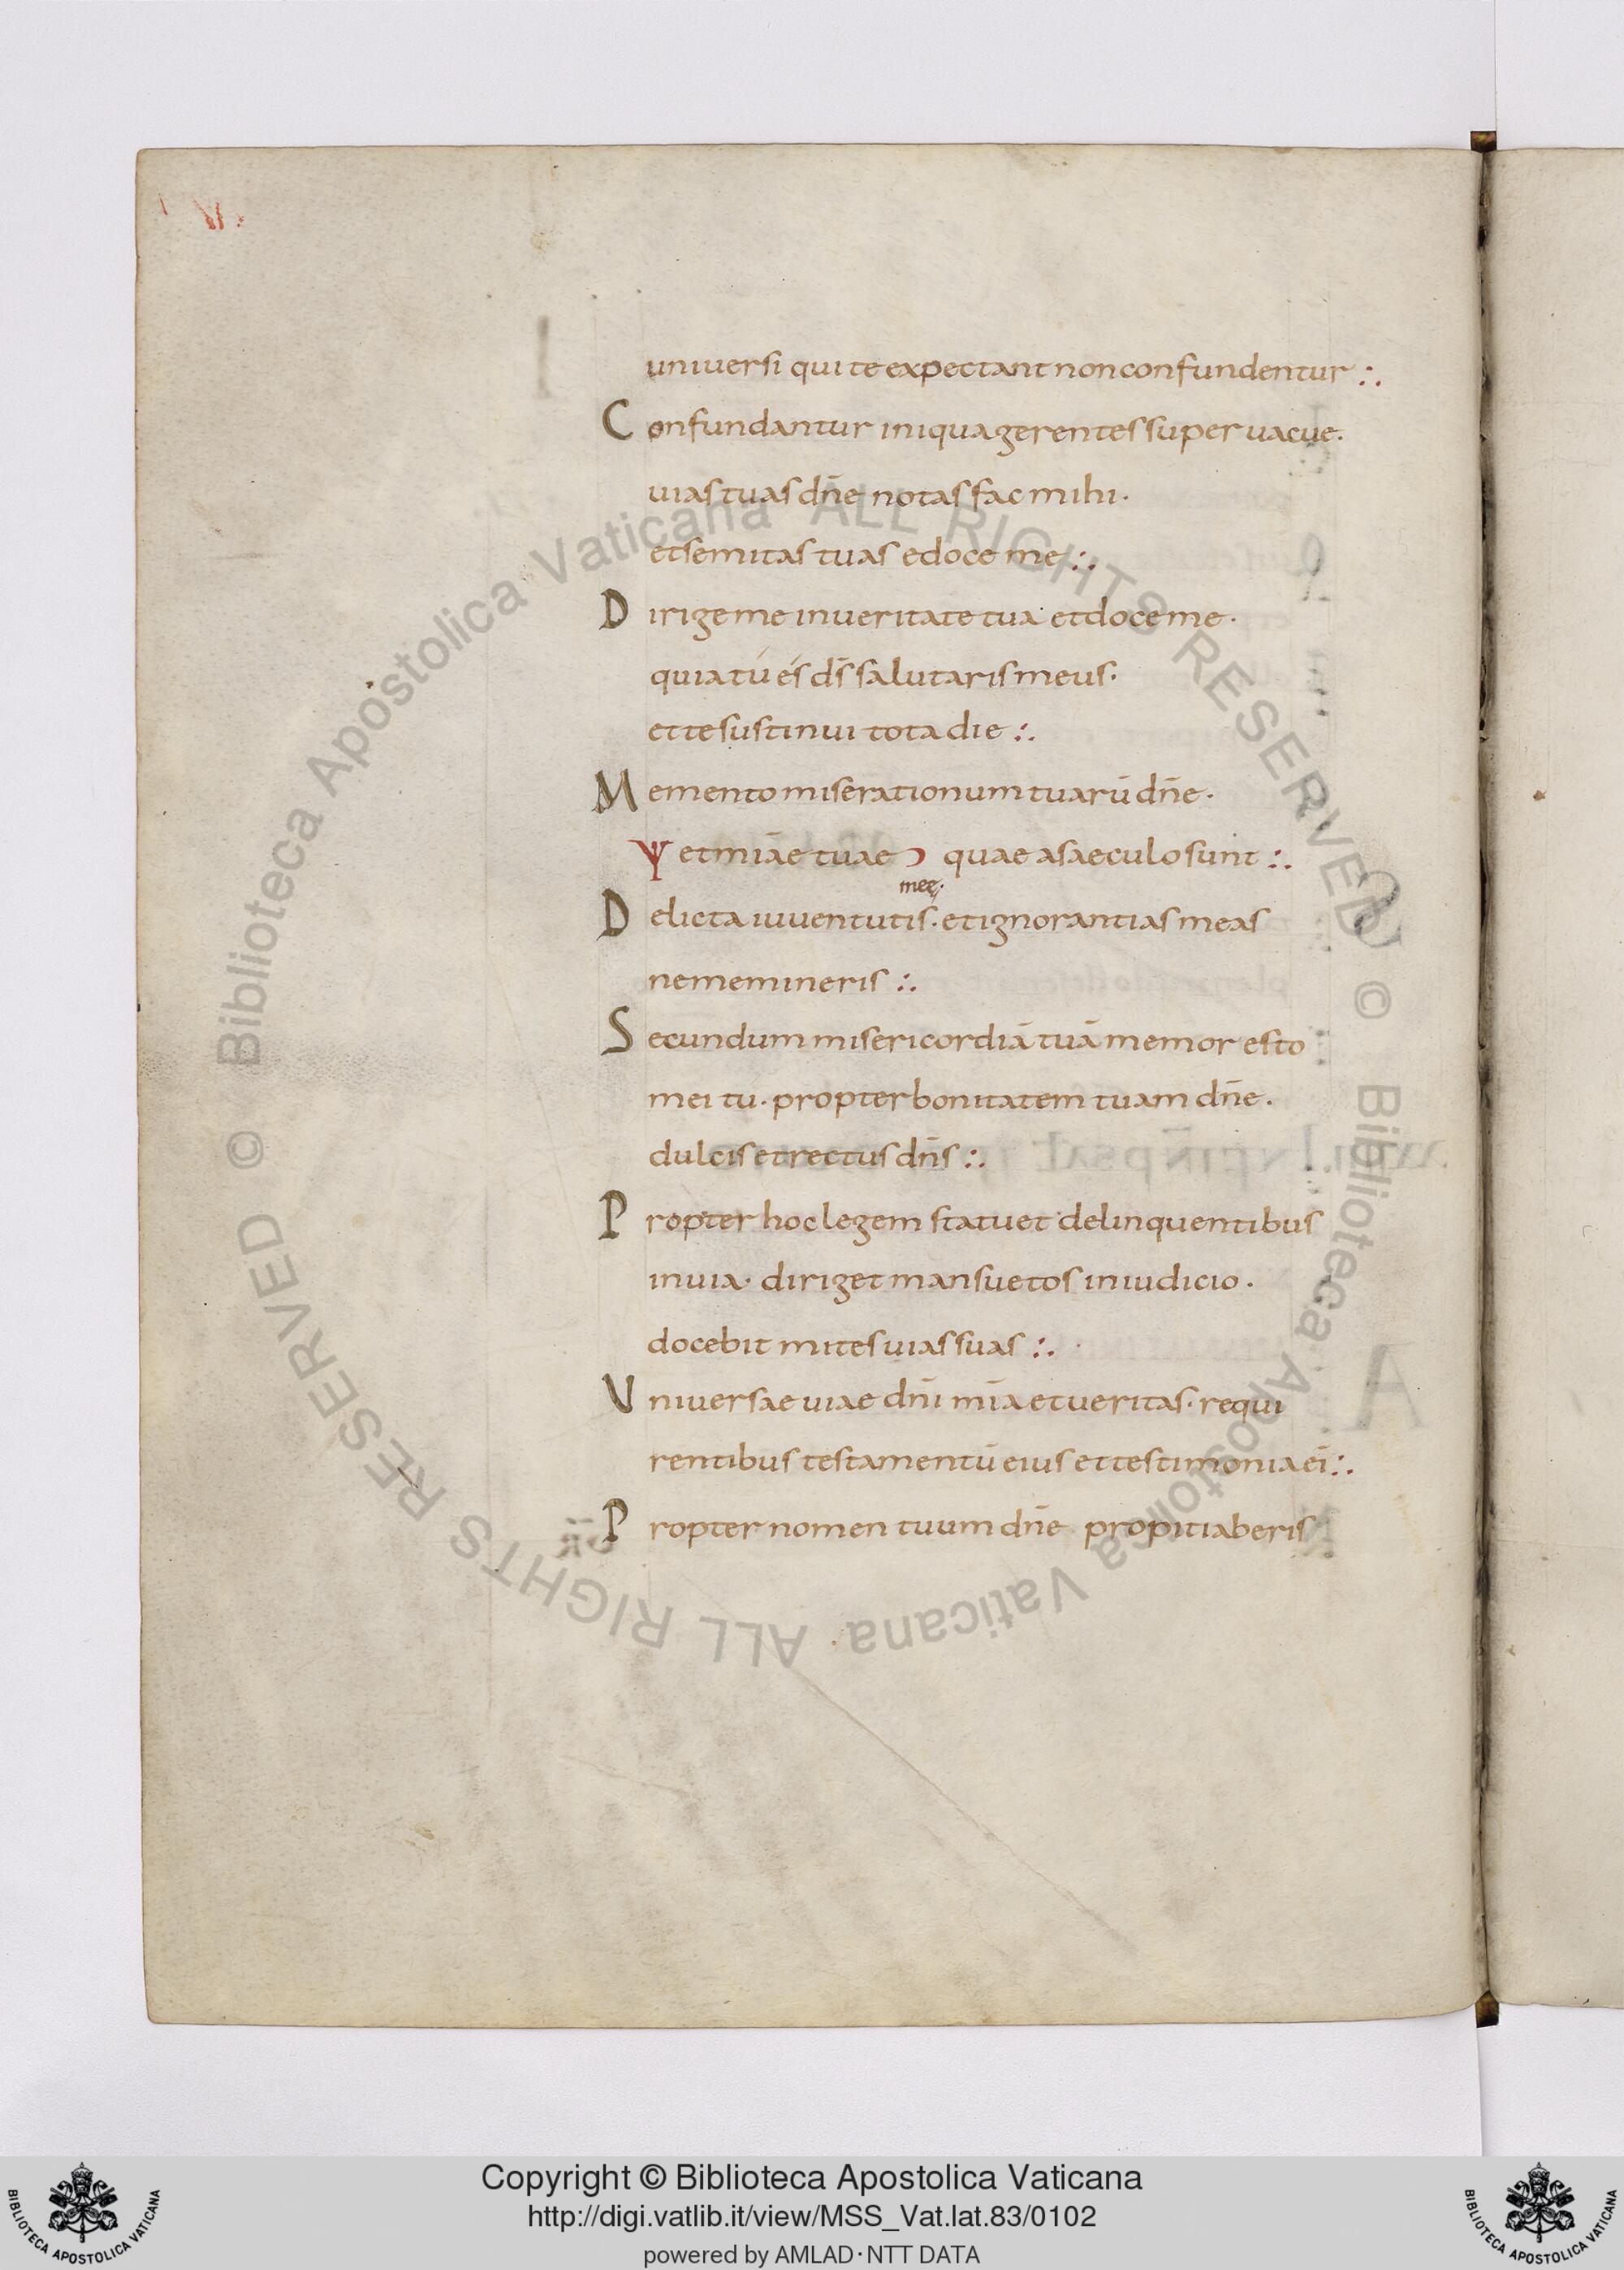 VI.
universi qui te expectant non confundentur :.
Confundantur iniqua gerentes super vacue.
uias tuas dñe notas fac mihi.
et semitas tuas edoce me :.
Dirige me in ueritate tua et doce me.
quia tú és dš salutaris meus.
et te sustinui tota die :.
Memento miserationum tuarū dñe.
Ѱ et miāe tuae Ↄ quae a saeculo sunt :.
meę.
Delicta iuuentutis. et ignorantias meas
ne memineris :.
Secundum misericordiā tuā memor esto
mei tu. propter bonitatem tuam dñe.
dulcis et rectus dñs :.
Propter hoc legem statuet delinquentibus
in uia. diriget mansuetos in iudicio.
docebit mites uias suas :.
Vniuersae uiae dñi mīa et ueritas. requi
rentibus testamentū eius et testimonia eī :.
Propter nomen tuum dñe propitiaberis
© Biblioteca Apostolica Vaticana ALL RIGHTS RESERVED
© Biblioteca Apostolica Vaticana ALL RIGHTS RESERVED
Copyright © Biblioteca Apostolica Vaticana
http://digi.vatlib.it/view/MSS_Vat.lat.83/0102
powered by AMLAD·NTT DATA
BIBLIOTECA APOSTOLICA VATICANA
BIBLIOTECA APOSTOLICA VATICANA